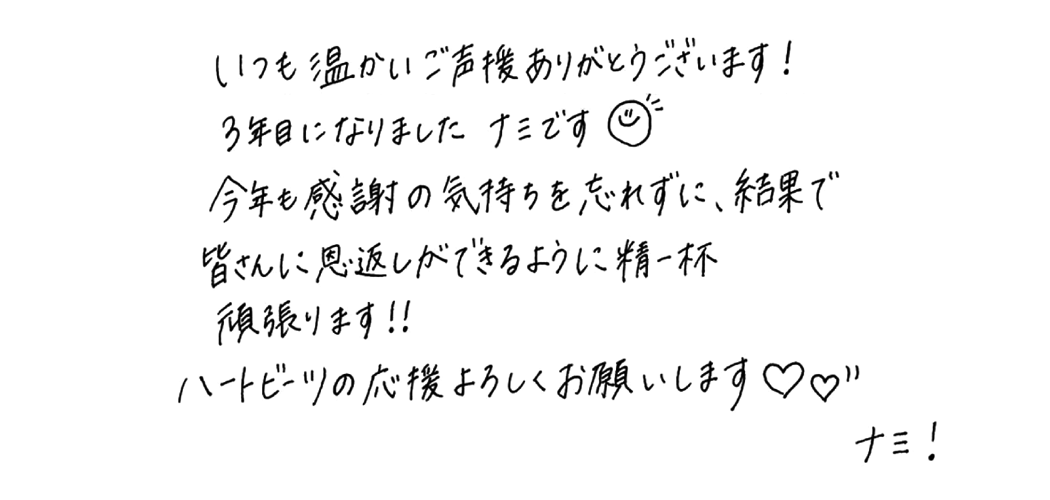 いつも温かいご声援ありがとうございます!
3年目になりました ナミです
今年も感謝の気持ちを忘れずに、結果で
皆さんに恩返しができるように精一杯
頑張ります!!
ハートビーツの応援よろしくお願いします♡♡"
ナミ!